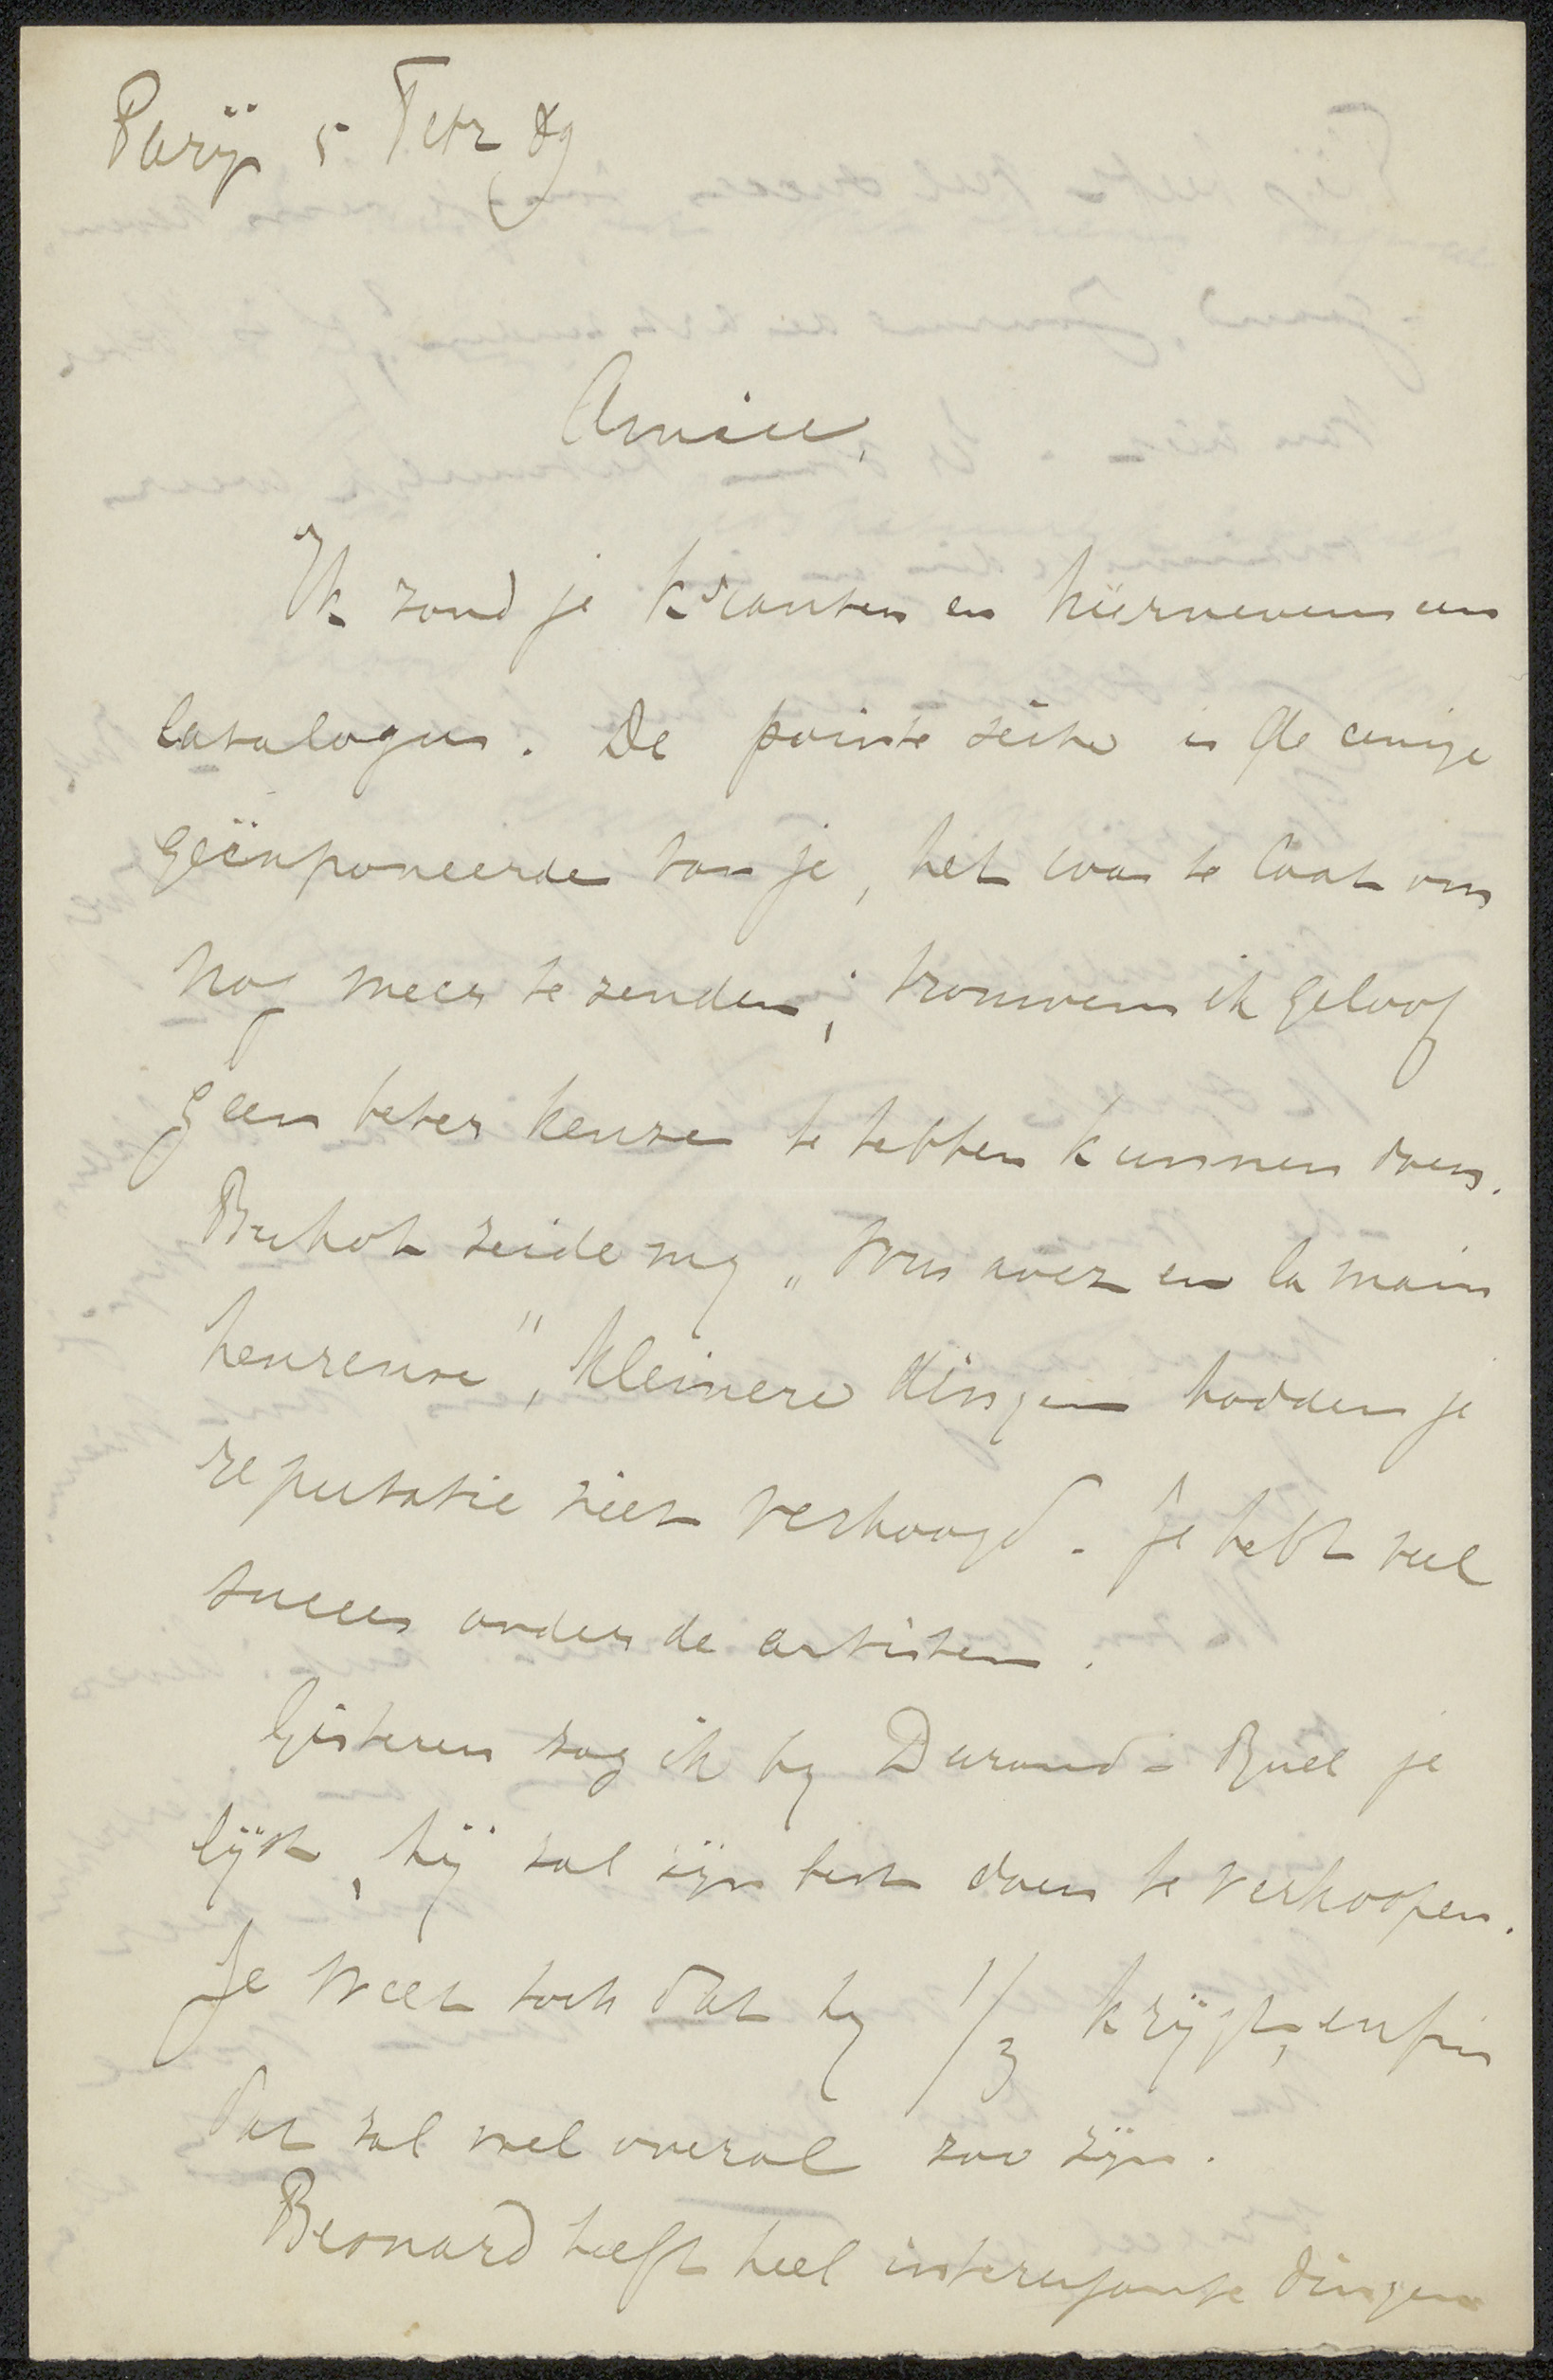 Parijs 5 Febr 89
Amice,
Ik zond je kranten en hiernevens een
catalogus. De pointe sèche is de eenige
geëxponeerde van je, het was te laat om
nog meer te zenden; trouwens ik geloof
geen beter keuze te hebben kunnen doen.
Buhot zeide mij „Vous avez eu la main
heureuse", kleinere dingen hadden je
reputatie niet verhoogd. Je hebt veel
succes onder de artisten.
Gisteren zag ik bij Durand-Ruel je
lijst, hij zal zijn best doen te verkoopen.
Je weet toch dat hij 1/3 krijgt, enfin
dat zal wel overal zoo zijn.
Besnard heeft heel interessante dingen